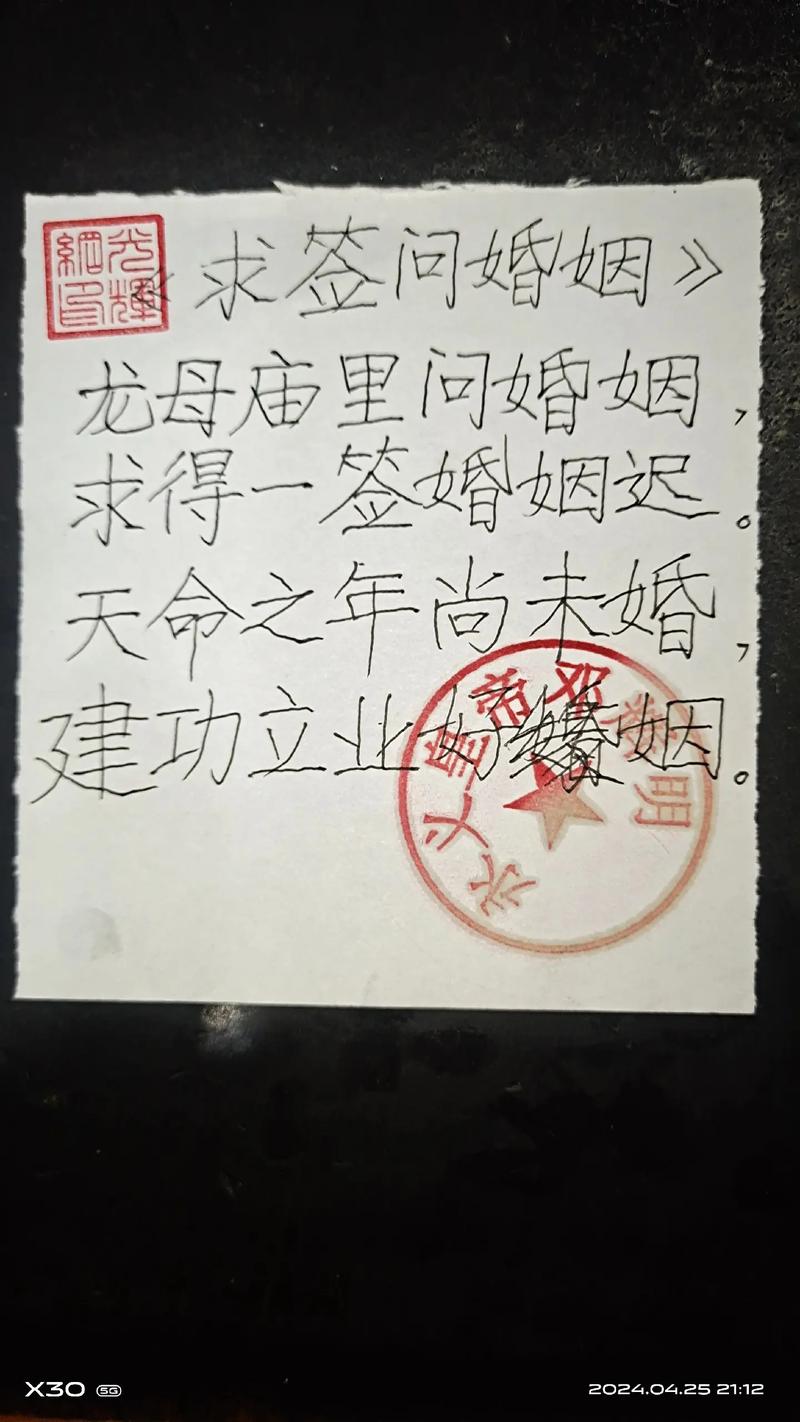 《求签问婚姻》
龙母庙里问婚姻，
求得一签婚姻迟。
天命之年尚未婚，
建功立业好婚姻。
永义皇帝邓 明
X30 5G
2024.04.25 21:12